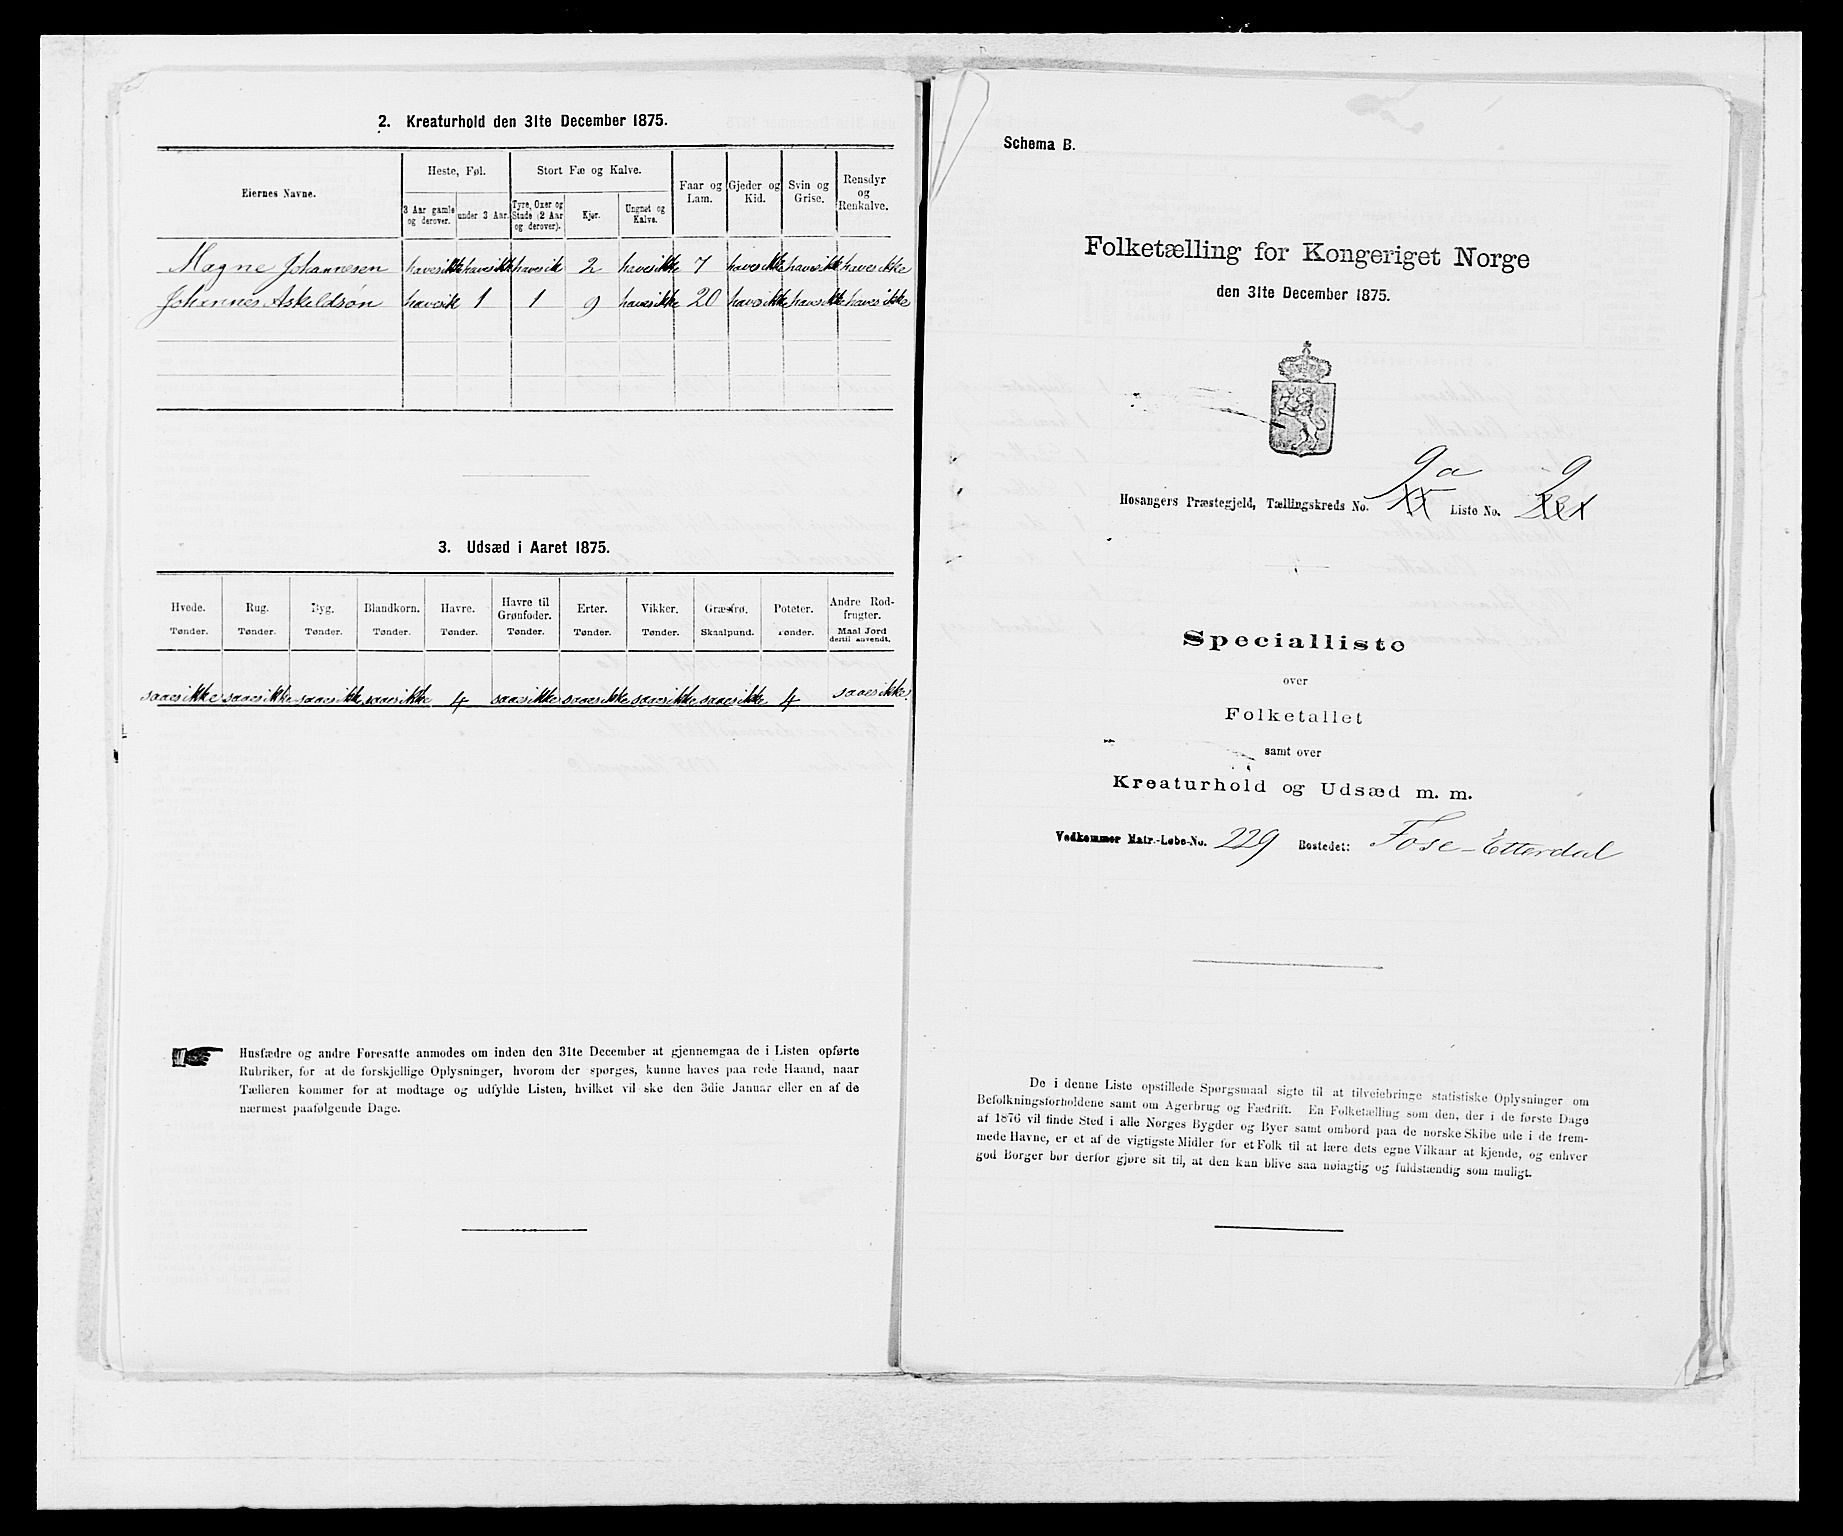 2. Kreaturhold den 31te December 1875.
Eiernes Navne.
Heste, Føl.
Stort Fæ og Kalve.
Faar og Lam.
Gjeder og Kid.
Svin og Grise.
Rensdyr og Renkalve.
3 Aar gamle og derover.
under 3 Aar.
Tyre, Oxer og Stude (2 Aar og derover).
Kjør.
Ungnøt og Kalve.
Magne Johannesen havesikke havesikke havesik 2 havesikke 7 havesikke havesikke havesikke
Johannes Askeldsøn havesik 1 1 9 havesikke 20 havesikke havesikke haves ikke
3. Udsæd i Aaret 1875.
Hvede. Rug. Byg. Blandkorn. Havre. Havre til Grønfoder. Erter. Vikker. Græsfrø. Poteter. Andre Rodfrugter.
Tønder. Tønder. Tønder. Tønder. Tønder. Tønder. Tønder. Tønder. Skaalpund. Tønder. Maal Jord dertil anvendt.
saaes ikke saaes ikke saaes ikke saaes ikke 4 saaes ikke saaes ikke saaes ikke saaes ikke 4 saaes ikke
Husfædre og andre Foresatte anmodes om inden den 31te December at gjennemgaa de i Listen opførte
Rubriker, for at de forskjellige Oplysninger, hvorom der spørges, kunne haves paa rede Haand, naar
Tælleren kommer for at modtage og udfylde Listen, hvilket vil ske den 3die Januar eller en af de
nærmest paafølgende Dage.
Schema B.
Folketælling for Kongeriget Norge
den 31te December 1875.
9a 9
Hosangers Præstegjeld, Tællingskreds No. Liste No.
Specialliste
over
Folketallet
samt over
Kreaturhold og Udsæd m. m.
Vedkommer Matr.-Løbe-No. 229 Bostedet: Fose-Etterdal
De i denne Liste opstillede Spørgsmaal sigte til at tilveiebringe statistiske Oplysninger om
Befolkningsforholdene samt om Agerbrug og Fædrift. En Folketælling som den, der i de første Dage
af 1876 vil finde Sted i alle Norges Bygder og Byer samt ombord paa de norske Skibe ude i de frem-
mede Havne, er et af de vigtigste Midler for et Folk til at lære dets egne Vilkaar at kjende, og enhver
god Borger bør derfor gjøre sit til, at den kan blive saa nøiagtig og fuldstændig som muligt.